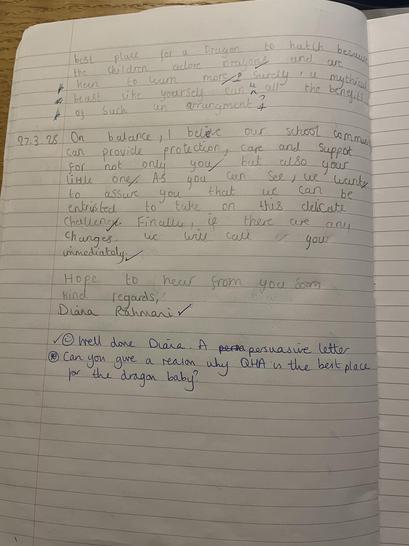 best place for a Dragon to hatch because
the children adore Dragons and are
keen to learn more. Surely, a mythical
beast like yourself can all the benefits
of such an arrangment?
27.3.25 On balance, I believe our school commun
can provide protection, care and suppot
for not only you, but also your
little one. As you can see, we want
to assure you that we can be
entrusted to take on this delicate
challenge. Finally, if there are any
changes, we will call your
immediately.
Hope to hear from you soon
kind regards,
Diana Rahmani
Well done Diana. A persuasive letter
Can you give a reason why QHA is the best place
for the dragon baby?